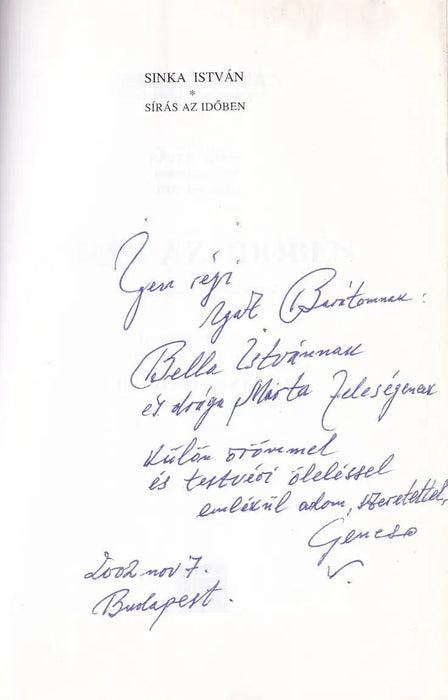 SINKA ISTVÁN
*
SÍRÁS AZ IDŐBEN
Igen régi
Igaz Barátomnak:
Bella Istvánnak
és drága Márta feleségének
külön örömmel
és testvéri öleléssel
emlékül adom, szeretettel,
Gencso
2002 nov 7.
Budapest.